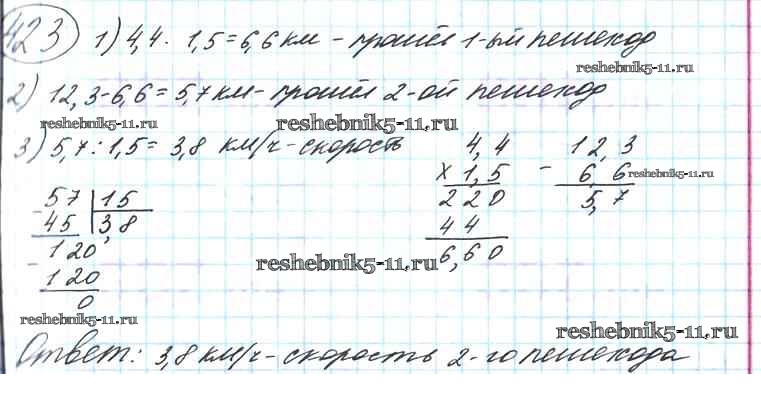 423 1) 4,4 · 1,5 = 6,6 км – прошёл 1-ый пешеход
reshebnik5-11.ru
2) 12,3 - 6,6 = 5,7 км – прошёл 2-ой пешеход
reshebnik5-11.ru reshebnik5-11.ru
3) 5,7 : 1,5 = 3,8 км/ч – скорость
4,4
x 1,5
220
44
6,60
12,3
- 6,6
5,7
reshebnik5-11.ru
- 57 | 15
45 | 3,8
- 120
120
0
reshebnik5-11.ru
reshebnik5-11.ru
reshebnik5-11.ru
Ответ: 3,8 км/ч – скорость 2-го пешехода